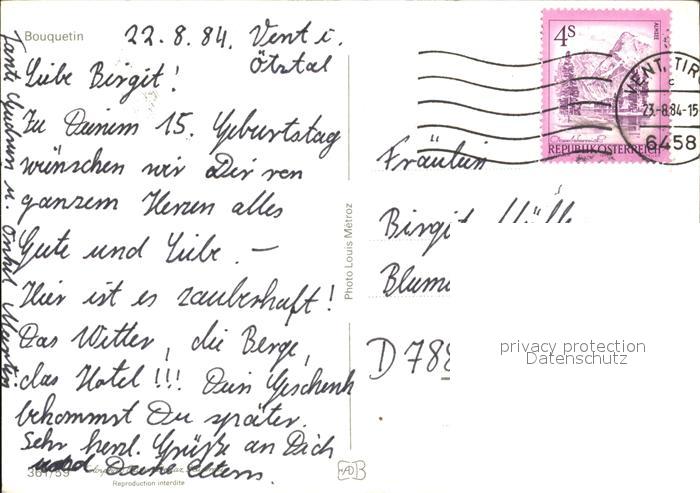 Bouquetin
22.8.84. Vent i.
Ötztal
Liebe Birgit!
Zu Deinem 15. Geburtstag
wünschen wir Dir von
ganzem Herzen alles
Gute und Liebe. —
Hier ist es zauberhaft!
Das Wetter, die Berge,
das Hotel!!! Dein Geschenk
bekommst Du später.
Sehr herzl. Grüße an Dich
und Deine Eltern.
Tante Gudrun u. Onkel
361/59
Reproduction interdite
Photo Louis Métroz
4S
REPUBLIK ÖSTERREICH
VENT, TIR
c
23.-8.84-15
6458
Fräulein
Birgit
Blume
D 788
privacy protection
Datenschutz